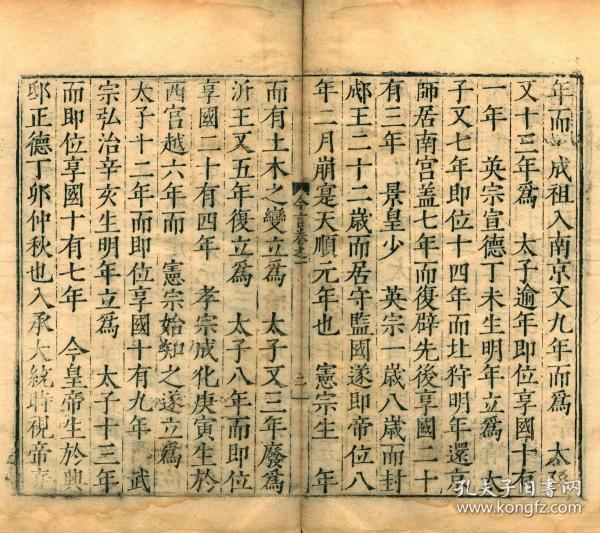 年而 成祖入南京又九年而爲 太孫
又十三年爲 太子逾年即位享國十有
一年 英宗宣德丁未生明年立爲 太
子又七年即位十四年而北狩明年還京
師居南宫盖七年而復辟先後享國二十
有三年 景皇少 英宗一歲八歲而封
郕王二十二歲而居守監國遂即帝位八
年二月崩寔天順元年也 憲宗生 年
今言卷之一
三
而有土木之變立爲 太子又三年廢爲
沂王又五年復立爲 太子八年而即位
享國二十有四年 孝宗成化庚寅生於
西宫越六年而 憲宗始知之遂立爲
太子十二年而即位享國十有九年 武
宗弘治辛亥生明年立爲 太子十三年
而即位享國十有七年 今皇帝生於興
邸正德丁卯仲秋也入承大統時視帝堯
孔夫子旧书网
www.kongfz.com